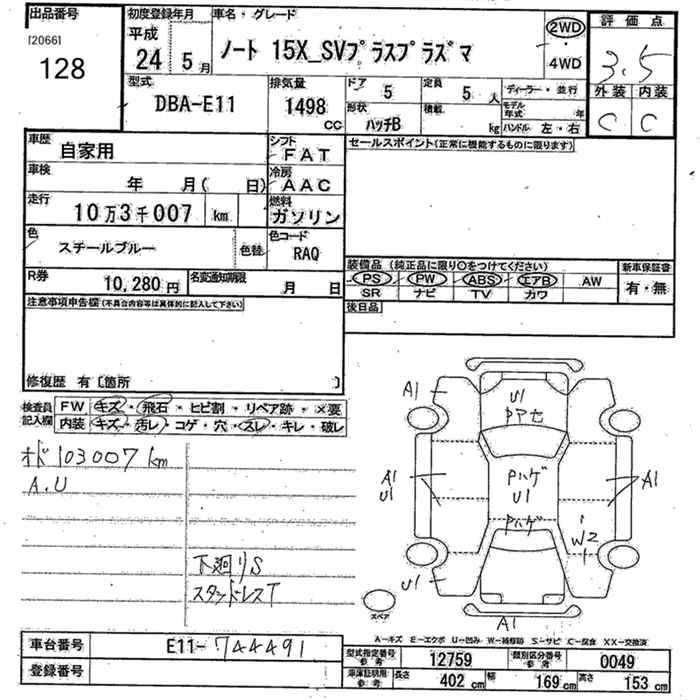 出品番号 初度登録年月 車名・グレード 評価点
[2066] 128
平成 24年 5月 ノート 15X_SVプラスプラズマ 2WD・4WD 3.5
型式 排気量 ドア 5 定員 5人 ディーラー・並行 外装 内装
DBA-E11 1498cc 形状 ハッチB 積載 kg モデル年式 年 C C
ハンドル 左・右
車歴 自家用 シフト FAT セールスポイント(正常に機能するものに限ります)
車検 年 月( 日) 冷房 AAC
走行 10万3千007 km 燃料 ガソリン
色 スチールブルー 色替 色コード RAQ
R券 10,280円 名変通知期限 月 日
装備品(純正品に限り○をつけてください) 新車保証書
PS PW ABS エアB AW 有・無
SR ナビ TV カワ
注意事項申告欄(不具合内容等は具体的に記入して下さい) 後日品
修復歴 有〔箇所 〕
検査員記入欄 FW キズ・飛石・ヒビ割・リペア跡・×要
内装 キズ・汚レ・コゲ・穴・スレ・キレ・破レ
オド103007km
A.U
下廻りS
スタッドレスT
A1
U1
A1
U1
Pハゲ
U1
Pハゲ
A1
W2
U1
A1
スペア
A-キズ E-エクボ U-凹み W-補修跡 S-サビ C-腐食 XX-交換済
車台番号 E11-744491 型式指定番号 参考 12759 類別区分番号 参考 0049
登録番号 車庫証明用 参考 長さ 402cm 幅 169cm 高さ 153cm